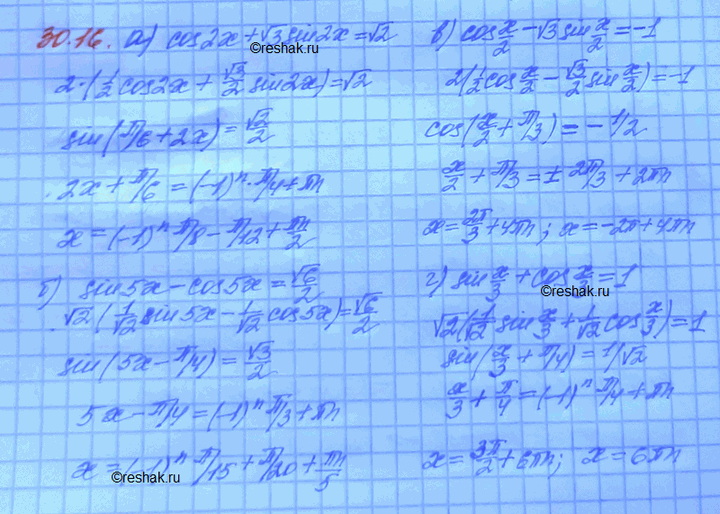 30.16. а) cos2x + √3 sin2x = √2
©reshak.ru
2·(1/2 cos2x + √3/2 sin2x) = √2
sin(π/6 + 2x) = √2/2
2x + π/6 = (-1)ⁿ · π/4 + πn
x = (-1)ⁿ π/8 - π/12 + πn/2
б) sin5x - cos5x = √6/2
√2·(1/√2 sin5x - 1/√2 cos5x) = √6/2
sin(5x - π/4) = √3/2
5x - π/4 = (-1)ⁿ π/3 + πn
x = (-1)ⁿ π/15 + π/20 + πn/5
©reshak.ru
в) cos x/2 - √3 sin x/2 = -1
2(1/2 cos x/2 - √3/2 sin x/2) = -1
cos(x/2 + π/3) = -1/2
x/2 + π/3 = ± 2π/3 + 2πn
x = 2π/3 + 4πn; x = -2π + 4πn
г) sin x/3 + cos x/3 = 1
©reshak.ru
√2(1/√2 sin x/3 + 1/√2 cos x/3) = 1
sin(x/3 + π/4) = 1/√2
x/3 + π/4 = (-1)ⁿ π/4 + πn
x = 3π/2 + 6πn; x = 6πn
©reshak.ru